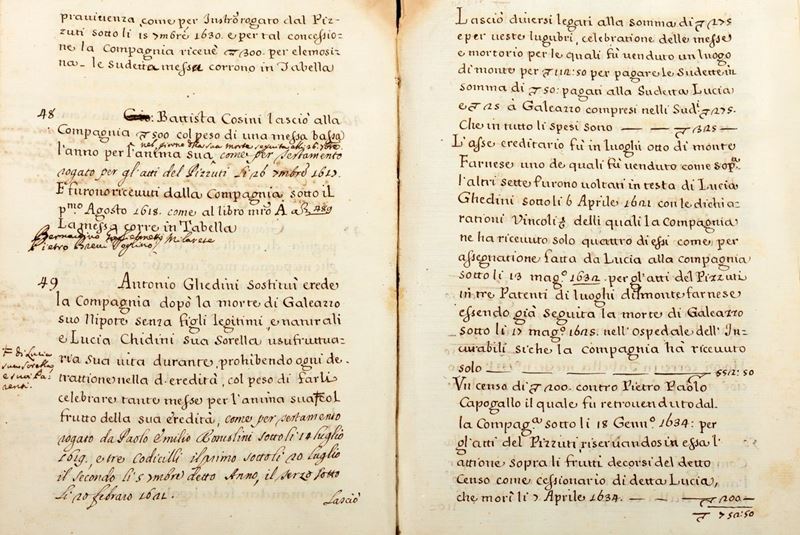 prauiuenza, come per Instro rogato dal Piz-
zuti sotto li 15 7mbrè 1630. e per tal concessio-
ne la Compagnia riceuè 300. per elemosi-
na le sudetta messa corrono in Tabella
48
Gio: Battista Cosini lasciò alla
Compagnia 500 col peso di una messa bassa
l'anno per l'anima sua, come per testamento
rogato per gl'atti del Pizzuti li 26 7mbrè 1617.
E furono riceuuti dalla Compagnia sotto il
pmo Agosto 1618. come al libro mro A a 489
La messa corre in Tabella
49
Antonio Ghedini Sostituì erede
la Compagnia dopò la morte di Galeazzo
suo Nipote senza figli legitimi, e naturali
e Lucia Chidini sua Sorella usufruttua-
ria sua vita durante, prohibendo ogni de-
trattione nella d. eredità, col peso di farli
celebrare tante messe per l'anima sua col
frutto della sua eredità, come per testamento
rogato da Paolo Emilio Bonsolini sotto li 10 luglio
1619, e tre Codicilli il primo sotto li 20 luglio
il secondo li 5 7mbre detto Anno, il terzo sotto
li 20 febraro 1621.
di Lucia
sua Sorella
e sua Pa-
renti.
Lasciò
Lasciò diuersi legati alla somma di 275
e per ueste lugubri, celebratione delle messe
e mortorio per le quali fù venduto un luogo
di monte per 112:50 per pagare le Sudette in
somma di 50: pagati alla Sudetta Lucia
e 25 à Galeazzo compresi nelli Sudi 275.
Che in tutto li spesi sono 325
L'asse ereditario fù in luoghi otto di monte
Farnese uno de quali fù venduto come sopa
l'altri sette furono voltati in testa di Lucia
Ghedini sotto li 6 Aprile 1621 con le dichia-
rationi Vincoli & delli quali la Compagnia
ne ha riceuuto solo quattro di essi come per
assegnatione fatta da Lucia alla compagnia
sotto li 13 mago 1632. per gl'atti del Pizzuti
in tre Patenti di luoghi di monte farnese
essendo già seguita la morte di Galeazzo
sotto li 17 mago 1625. nell'ospedale dell'In-
curabili si che la compagnia hà riceuuto
solo 552:50
Vn censo di 200. contro Pietro Paolo
Capogallo il quale fu retrouenduto dal.
la Compaga sotto li 18 Gennro 1634: per
gl'atti del Pizzuti, riseruandosi in essa l'
attione sopra li frutti decorsi del detto
Censo come cessionario di detta Lucia,
che morì li 7 Aprile 1634. 200
752:50